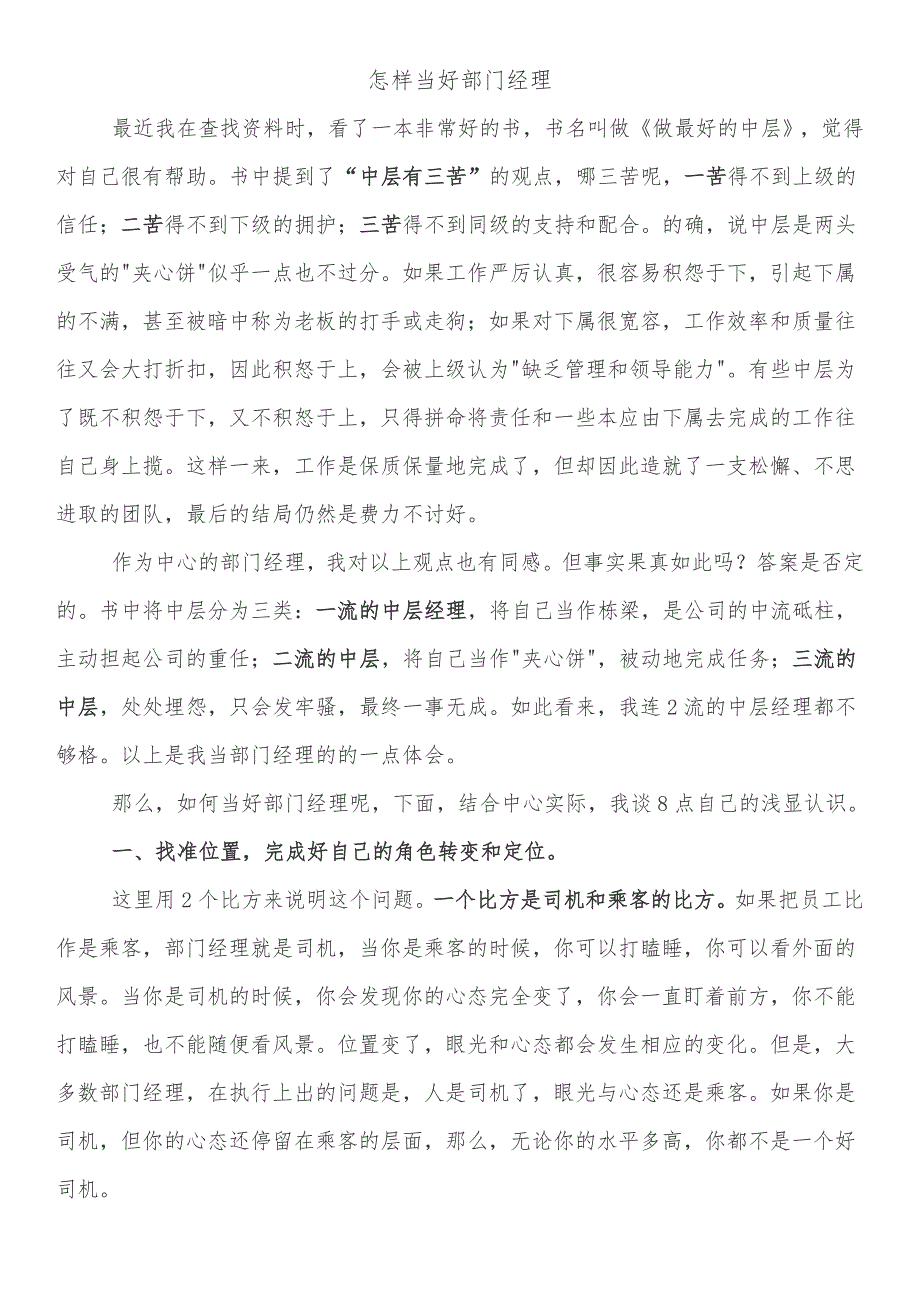 怎样当好部门经理
最近我在查找资料时，看了一本非常好的书，书名叫做《做最好的中层》，觉得
对自己很有帮助。书中提到了“中层有三苦”的观点，哪三苦呢，一苦得不到上级的
信任；二苦得不到下级的拥护；三苦得不到同级的支持和配合。的确，说中层是两头
受气的"夹心饼"似乎一点也不过分。如果工作严厉认真，很容易积怨于下，引起下属
的不满，甚至被暗中称为老板的打手或走狗；如果对下属很宽容，工作效率和质量往
往又会大打折扣，因此积怒于上，会被上级认为"缺乏管理和领导能力"。有些中层为
了既不积怨于下，又不积怒于上，只得拼命将责任和一些本应由下属去完成的工作往
自己身上揽。这样一来，工作是保质保量地完成了，但却因此造就了一支松懈、不思
进取的团队，最后的结局仍然是费力不讨好。
作为中心的部门经理，我对以上观点也有同感。但事实果真如此吗？答案是否定
的。书中将中层分为三类：一流的中层经理，将自己当作栋梁，是公司的中流砥柱，
主动担起公司的重任；二流的中层，将自己当作"夹心饼"，被动地完成任务；三流的
中层，处处埋怨，只会发牢骚，最终一事无成。如此看来，我连2流的中层经理都不
够格。以上是我当部门经理的的一点体会。
那么，如何当好部门经理呢，下面，结合中心实际，我谈8点自己的浅显认识。
一、找准位置，完成好自己的角色转变和定位。
这里用2个比方来说明这个问题。一个比方是司机和乘客的比方。如果把员工比
作是乘客，部门经理就是司机，当你是乘客的时候，你可以打瞌睡，你可以看外面的
风景。当你是司机的时候，你会发现你的心态完全变了，你会一直盯着前方，你不能
打瞌睡，也不能随便看风景。位置变了，眼光和心态都会发生相应的变化。但是，大
多数部门经理，在执行上出的问题是，人是司机了，眼光与心态还是乘客。如果你是
司机，但你的心态还停留在乘客的层面，那么，无论你的水平多高，你都不是一个好
司机。